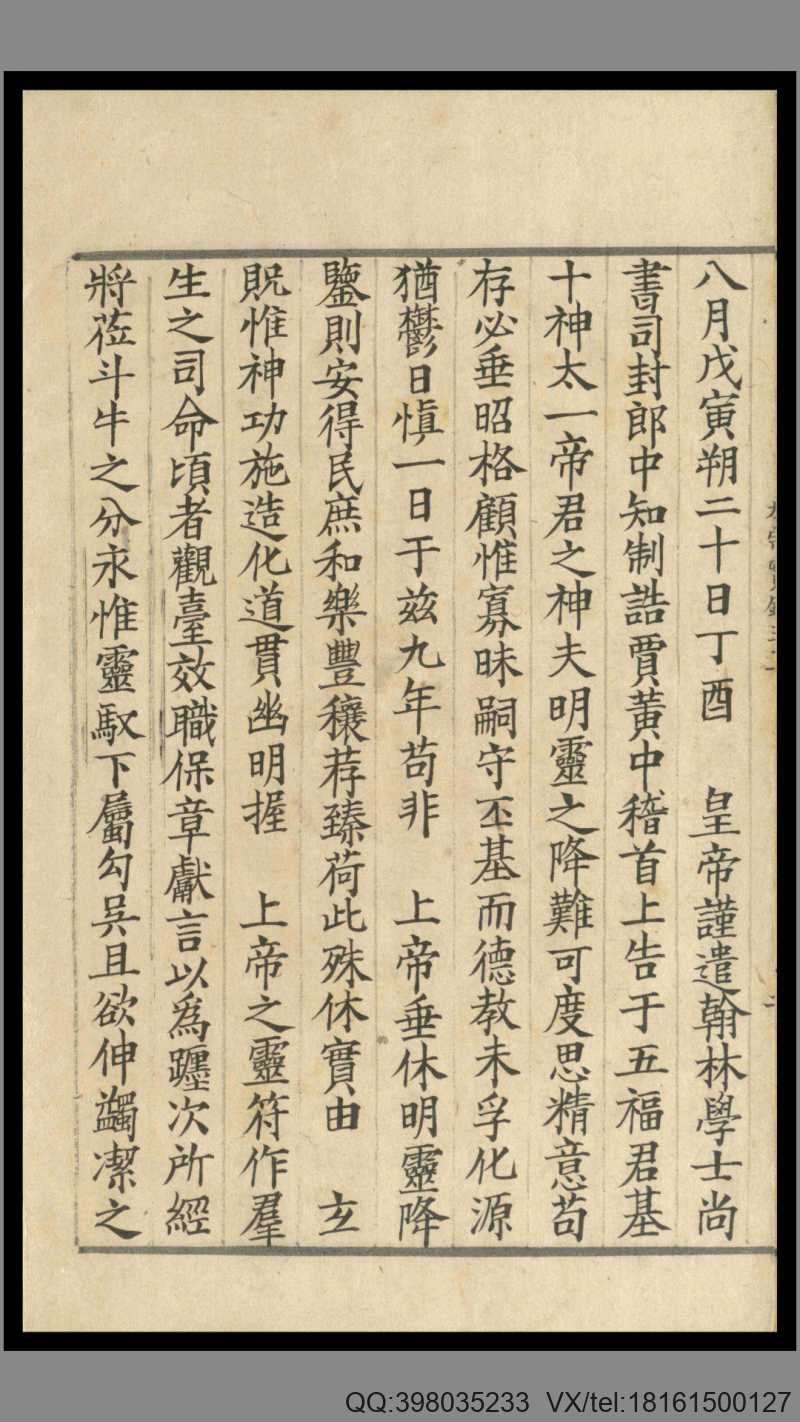 八月戊寅朔二十日丁酉　皇帝謹遣翰林學士尚
書司封郎中知制誥賈黃中稽首上告于五福君基
十神太一帝君之神夫明靈之降難可度思精意苟
存必垂昭格顧惟寡昧嗣守丕基而德教未孚化源
猶鬱日慎一日于兹九年苟非　上帝垂休明靈降
鑒則安得民庶和樂豐穰荐臻荷此殊休實由　玄
貺惟神功施造化道貫幽明握　上帝之靈符作羣
生之司命頃者觀臺效職保章獻言以爲躔次所經
將莅斗牛之分永惟靈馭下屬勾吳且欲伸蠲潔之
QQ:398035233 VX/tel:18161500127